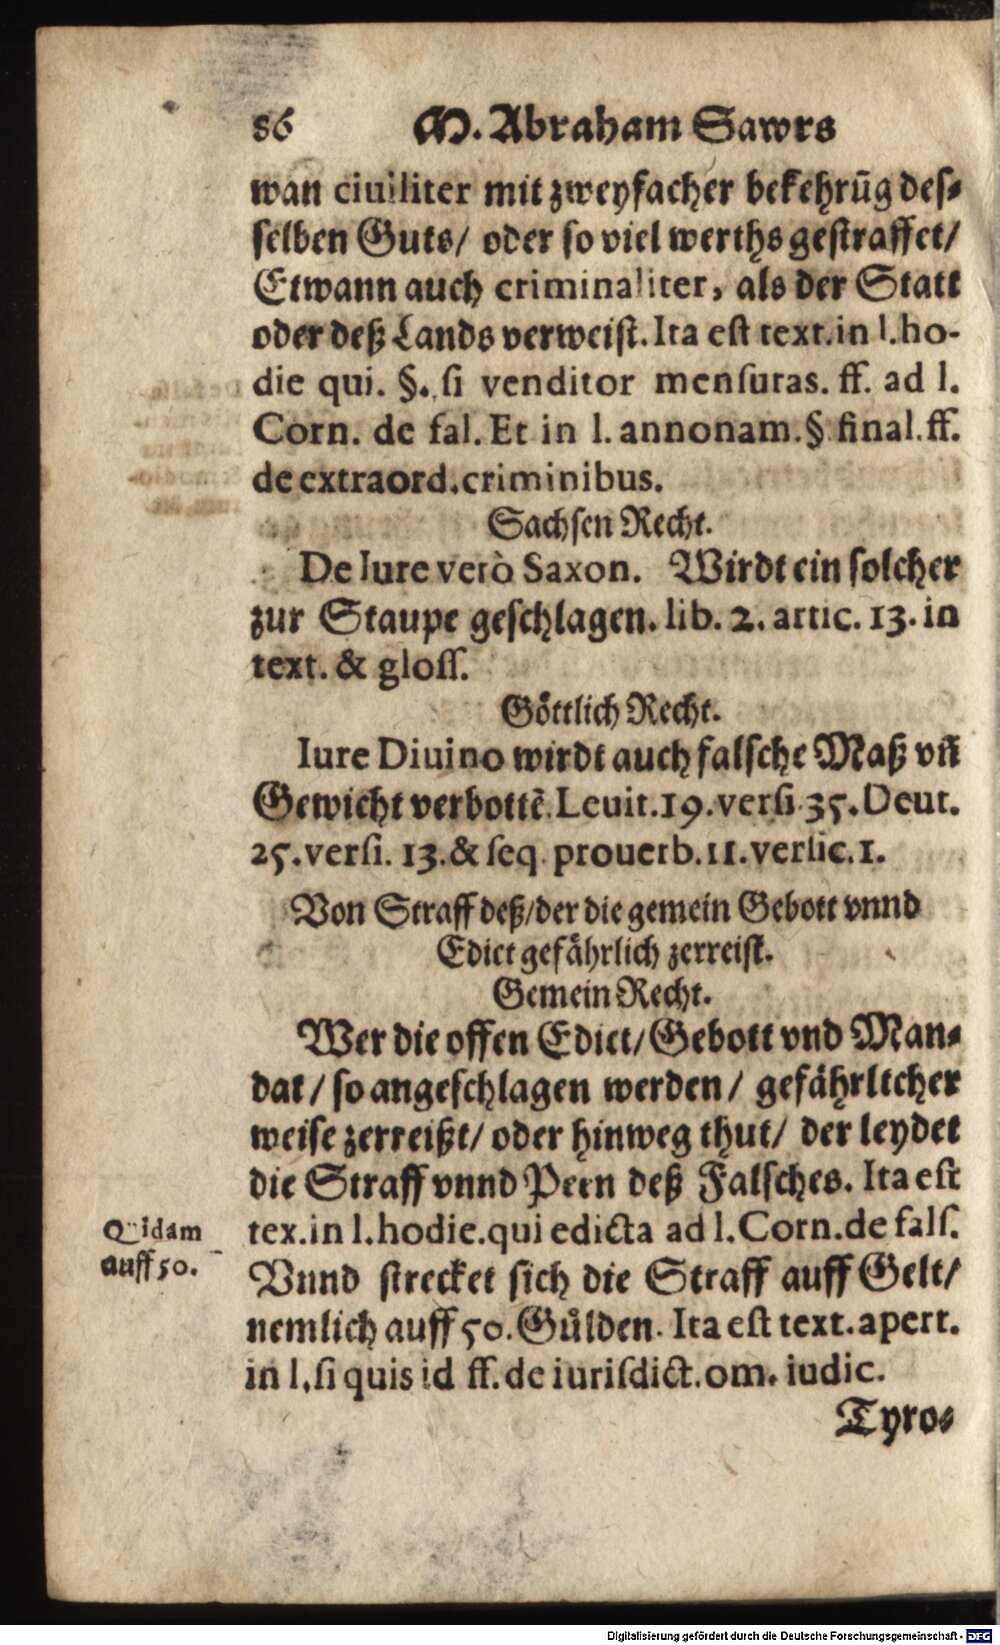 86 M. Abraham Sawrs
wan ciuiliter mit zweyfacher bekehrūg des⸗
selben Guts/ oder so viel werths gestraffet/
Etwann auch criminaliter, als der Statt
oder deß Lands verweist. Ita est text. in l. ho-
die qui. §. si venditor mensuras. ff. ad l.
Corn. de fal. Et in l. annonam. § final. ff.
de extraord. criminibus.
Sachsen Recht.
De Iure verò Saxon. Wirdt ein solcher
zur Staupe geschlagen. lib. 2. artic. 13. in
text. & gloss.
Göttlich Recht.
Iure Diuino wirdt auch falsche Maß vñ
Gewicht verbottē. Leuit. 19. versi. 35. Deut.
25. versi. 13. & seq. prouerb. 11. versic. 1.
Von Straff deß/ der die gemein Gebott vnnd
Edict gefährlich zerreist.
Gemein Recht.
Wer die offen Edict/ Gebott vnd Man⸗
dat/ so angeschlagen werden/ gefährlicher
weise zerreißt/ oder hinweg thut/ der leydet
die Straff vnnd Peen deß Falsches. Ita est
tex. in l. hodie. qui edicta ad l. Corn. de fals.
Vnnd strecket sich die Straff auff Gelt/
nemlich auff 50. Gülden. Ita est text. apert.
in l. si quis id ff. de iurisdict. om. iudic.
Quidam
auff 50.
Tyro⸗
Digitalisierung gefördert durch die Deutsche Forschungsgemeinschaft - DFG